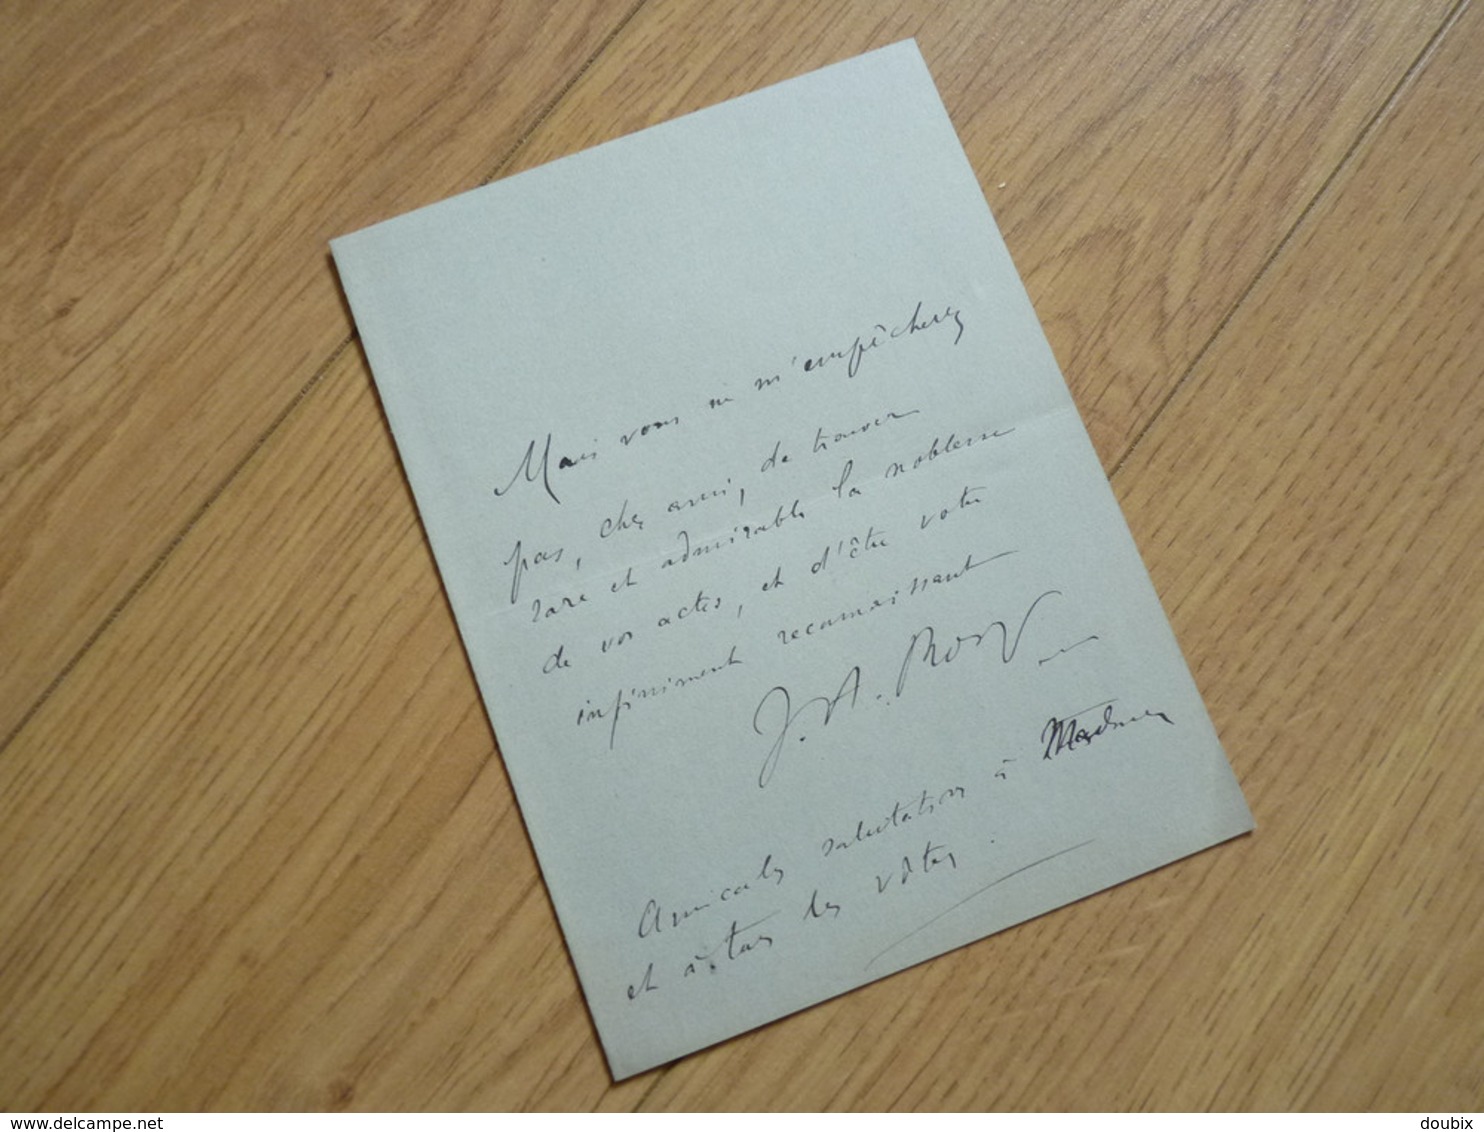 Mais vous ne m'empêcherez
pas, cher ami, de trouver
rare et admirable la noblesse
de vos actes, et d'être votre
infiniment reconnaissant
J. H. Rosny
Amicales salutations à Madame
et à tous les vôtres.
delcampe.net
doubix